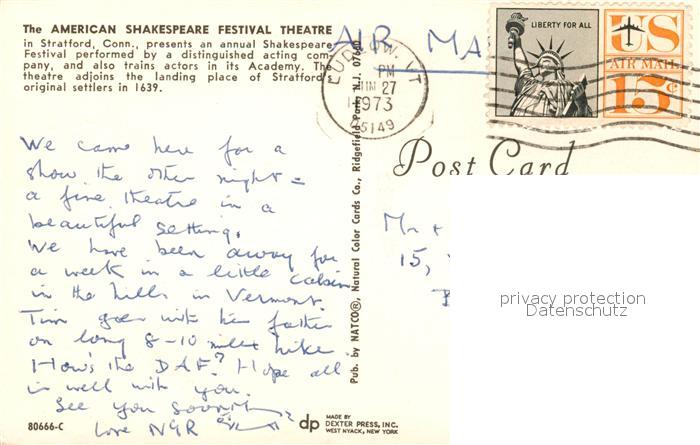 The AMERICAN SHAKESPEARE FESTIVAL THEATRE
in Stratford, Conn., presents an annual Shakespeare
Festival performed by a distinguished acting com-
pany, and also trains actors in its Academy. The
theatre adjoins the landing place of Stratford's
original settlers in 1639.
AIR MA
LUDLOW, VT
PM
JUN 27
1973
05149
LIBERTY FOR ALL
US
AIR MAIL
15¢
Post Card
We came here for a
show the other night =
a fine theatre in a
beautiful setting.
We have been away for
a week in a little cabin
in the hills in Vermont.
Tim goes with his father
on long 8-10 miles hike.
How's the DAF? Hope all
is well with you.
See you soonish
Love
Mr +
15,
privacy protection
Datenschutz
Pub. by NATCO®, Natural Color Cards Co., Ridgefield Park, N.J. 07660
80666-C
dp
MADE BY
DEXTER PRESS, INC.
WEST NYACK, NEW YORK